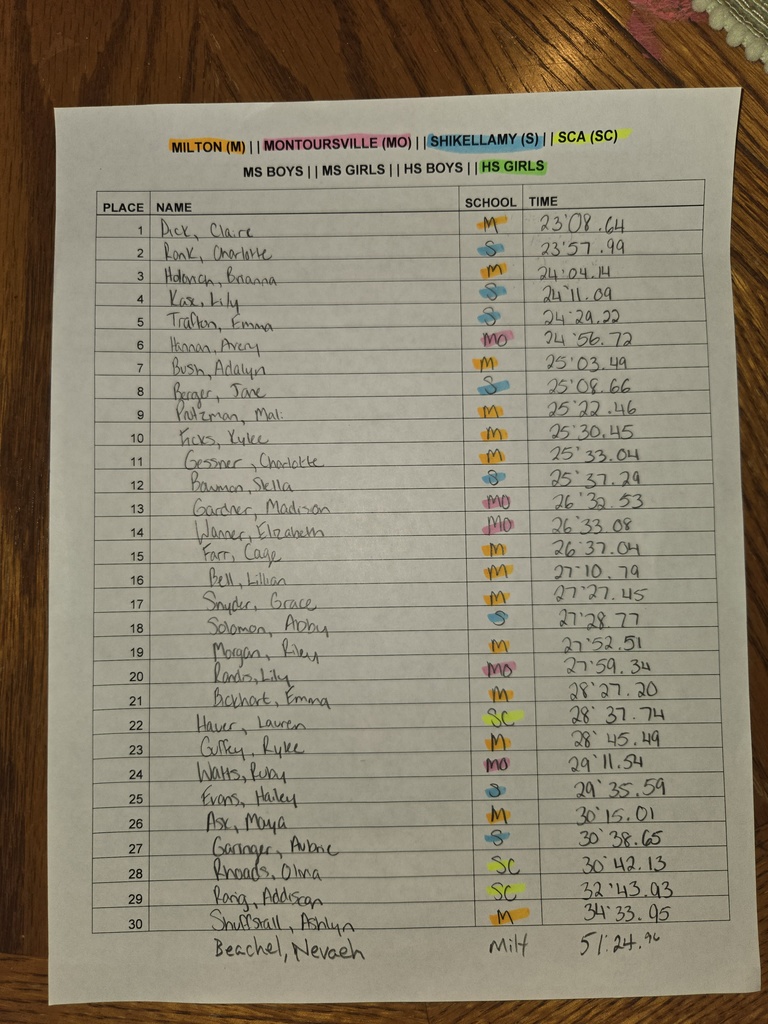 MILTON (M) || MONTOURSVILLE (MO) || SHIKELLAMY (S) || SCA (SC)
MS BOYS || MS GIRLS || HS BOYS || HS GIRLS
PLACE NAME SCHOOL TIME
1 Dick, Claire M 23'08.64
2 Ronk, Charlotte S 23'57.99
3 Holovich, Brianna M 24'04.14
4 Kase, Lily S 24'11.09
5 Trafton, Emma S 24'29.22
6 Hannan, Avery MO 24'56.72
7 Bush, Adalyn M 25'03.49
8 Berger, Jane S 25'08.66
9 Protzman, Mali M 25'22.46
10 Ficks, Kylee M 25'30.45
11 Gessner, Charlotte M 25'33.04
12 Bowman, Stella S 25'37.29
13 Gardner, Madison MO 26'32.53
14 Wanner, Elizabeth MO 26'33.08
15 Farr, Cage M 26'37.04
16 Bell, Lillian M 27'10.79
17 Snyder, Grace M 27'27.45
18 Solomon, Abby S 27'28.77
19 Morgan, Riley M 27'52.51
20 Randis, Lily MO 27'59.34
21 Bickhart, Emma M 28'27.20
22 Hauer, Lauren SC 28'37.74
23 Guffey, Rylee M 28'45.49
24 Watts, Ruby MO 29'11.54
25 Evans, Hailey S 29'35.59
26 Ask, Maya M 30'15.01
27 Garinger, Aubrie S 30'38.65
28 Rhoads, Olivia SC 30'42.13
29 Rarig, Addison SC 32'43.93
30 Shuffstall, Ashlyn M 34'33.95
Beachel, Nevaeh Milt 51'24.96